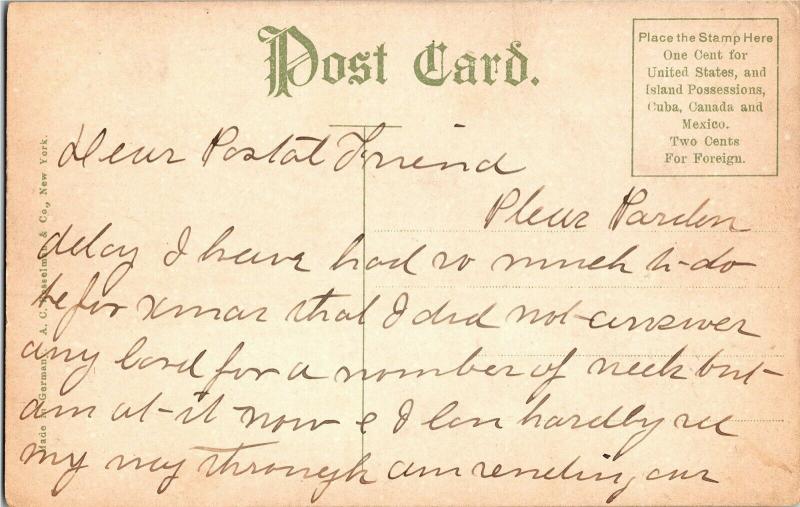 Post Card.
Place the Stamp Here
One Cent for
United States, and
Island Possessions,
Cuba, Canada and
Mexico.
Two Cents
For Foreign.
Made in Germany. A. C. Bosselman & Co., New York.
Dear Postal Friend
Pleas Pardon
delay I have had so much to do
befor xmas that I did not answer
any card for a number of week but
am at it now & I can hardly see
my way through am sending our